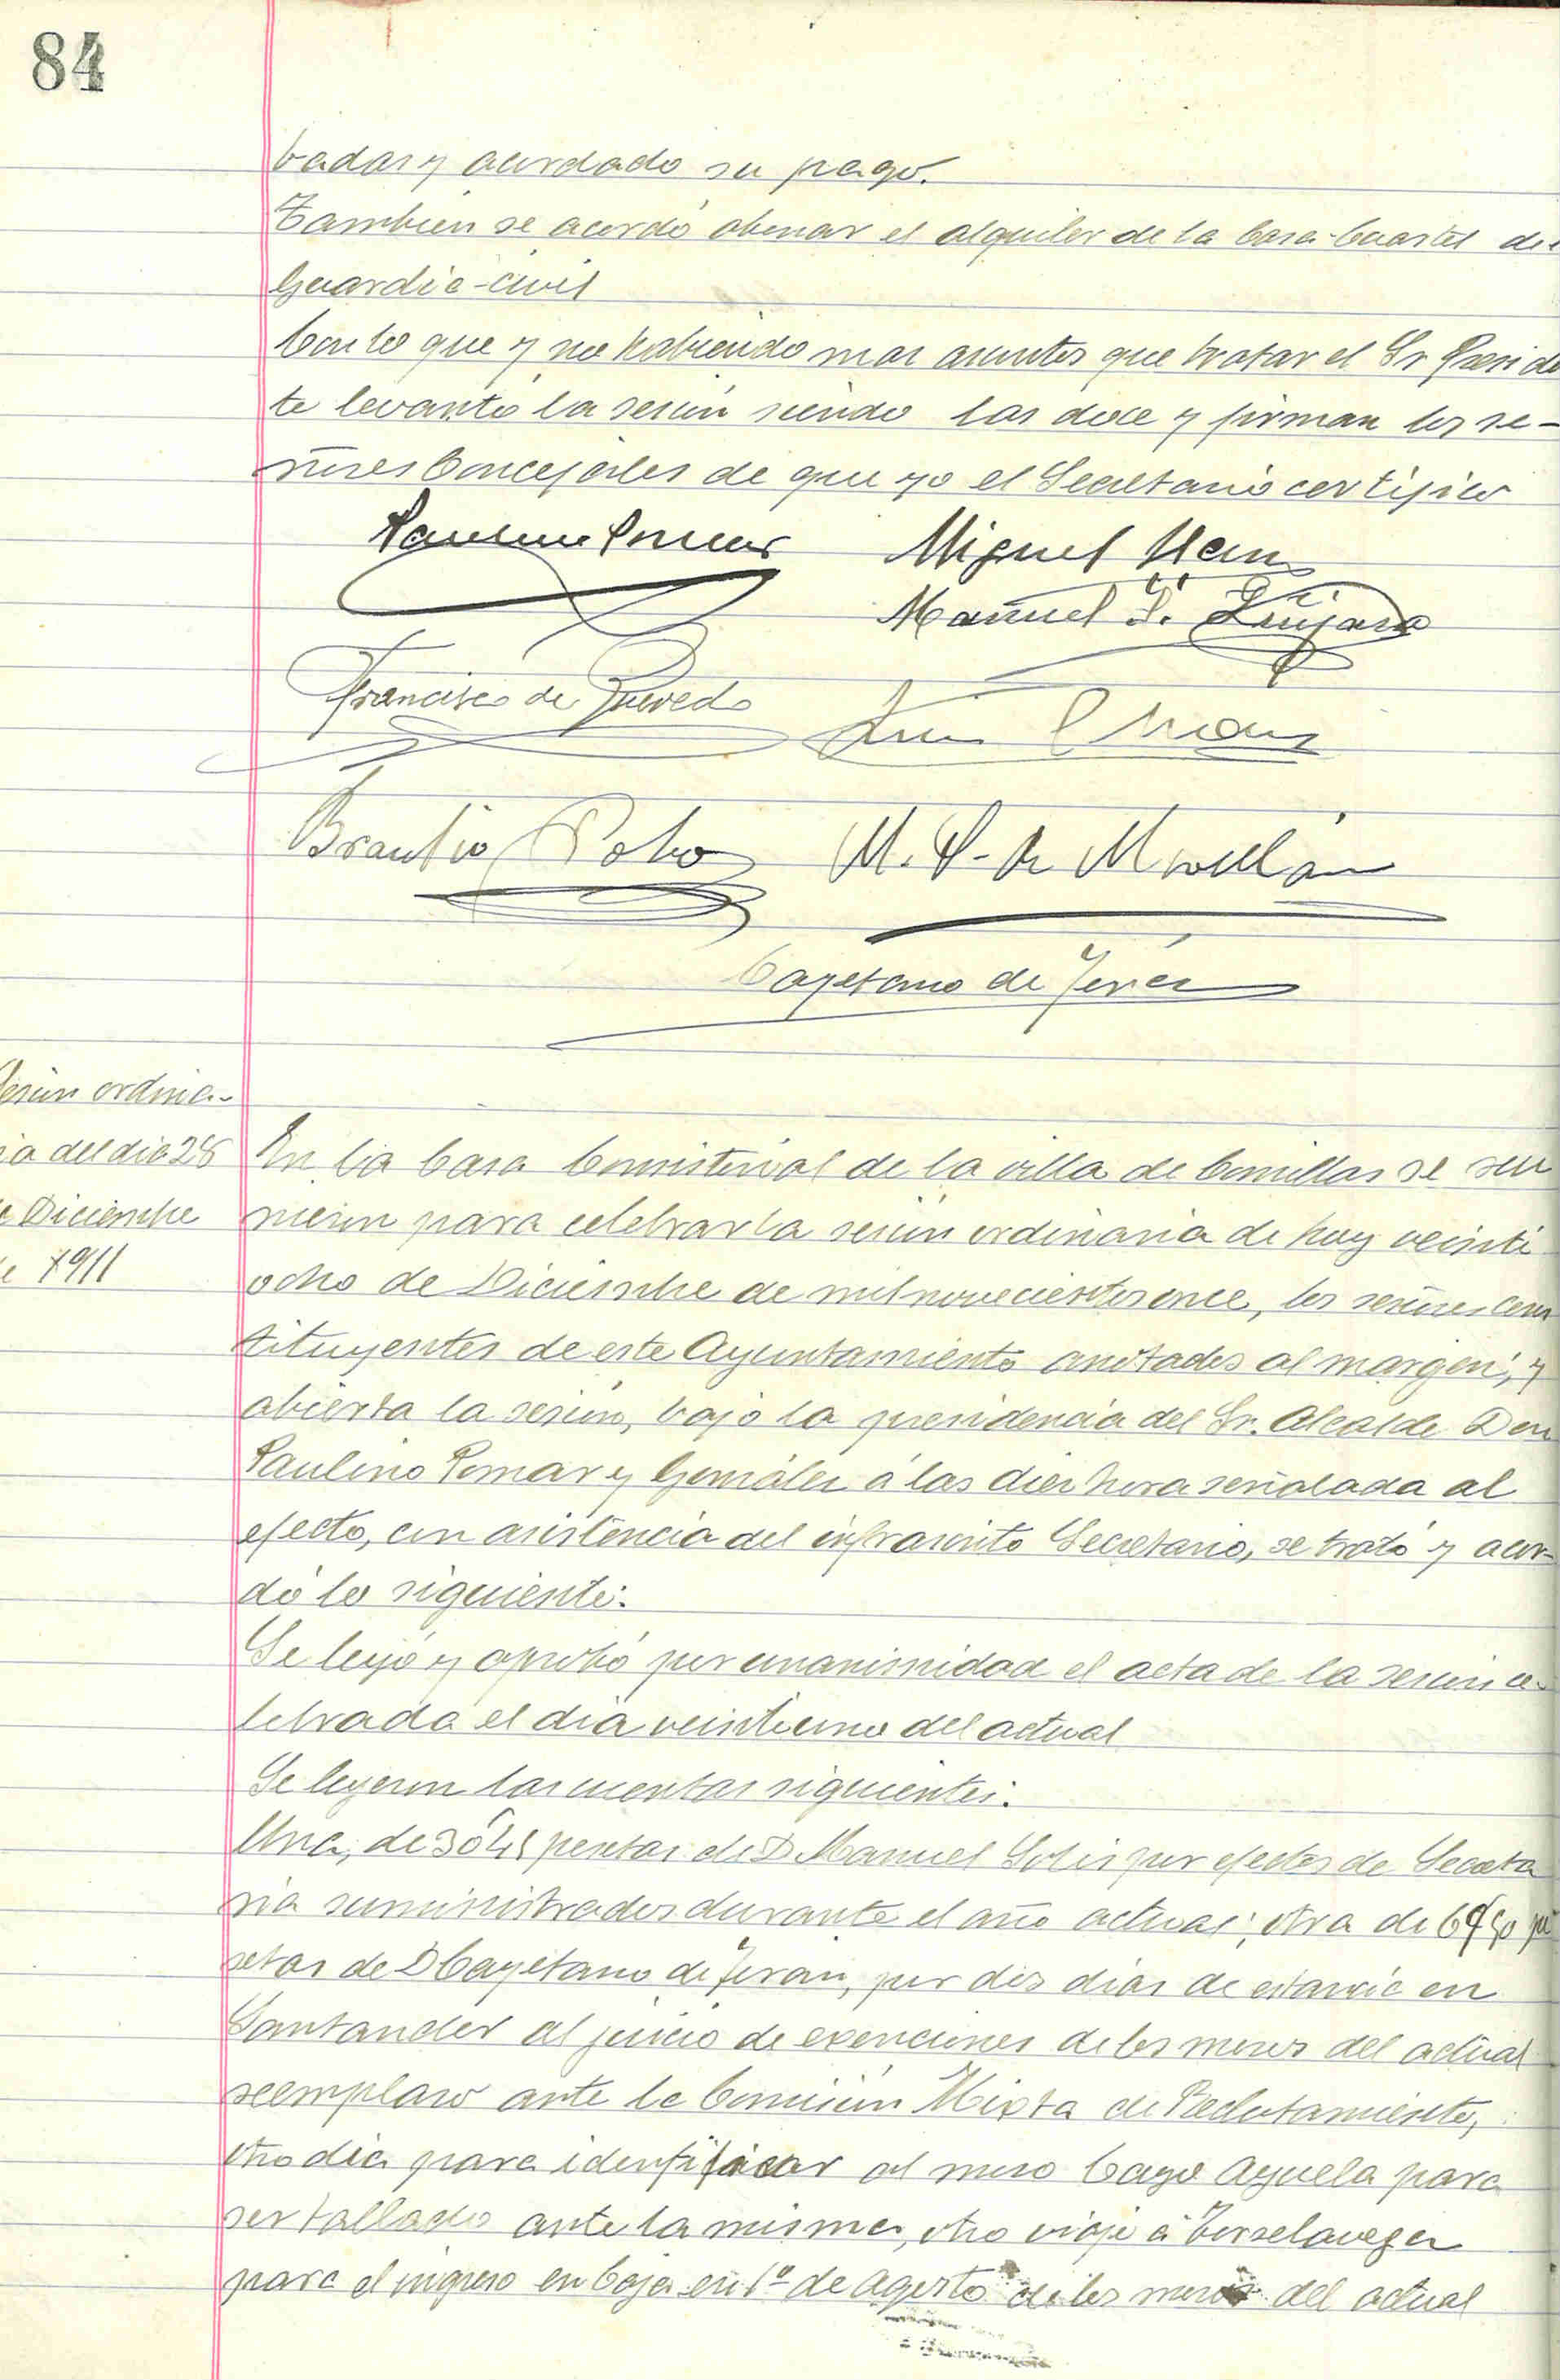 84
badas y acordado su pago.
Tambien se acordó abonar el alquiler de la Casa-Cuartel de
Guardia-civil
Con lo que y no habiendo mas asuntos que tratar el Sr Preside
te levantó la sesión siendo las doce y firman los se-
ñores Concejales de que yo el Secretario certifico
Paulino Pomar Miguel
Manuel
Francisco de Quevedo
Braulio Pobo M. P. de Movellán
Cayetano de Terán
Sesión ordina-
ia del dia 28
e Diciembre
e 1911
En la Casa Consistorial de la villa de Comillas se reu
nieron para celebrar la sesión ordinaria de hoy veinti
ocho de Diciembre de mil novecientos once, los señores cons
tituyentes de este Ayuntamiento anotados al margen; y
abierta la sesión, bajo la presidencia del Sr. Alcalde Don
Paulino Pomar y González á las diez hora señalada al
efecto, con asistencia del infrascrito Secretario, se trató y acor-
dó lo siguiente:
Se leyó y aprobó por unanimidad el acta de la sesión ce-
lebrada el dia veintiuno del actual
Se leyeron las cuentas siguientes:
Una, de pesetas de D Manuel Solis por efectos de Secreta
ria suministrados durante el año actual; otra de pe
setas de D Cayetano de Terán, por dos dias de estancia en
Santander al juicio de exenciones de los mozos del actual
reemplazo ante la Comisión Mixta de Reclutamiento,
otro dia para identificar al mozo Cayo Ayuela para
ser tallado ante la misma, otro viaje á Torrelavega
para el ingreso en Caja en 1º de Agosto de los mozos del actual